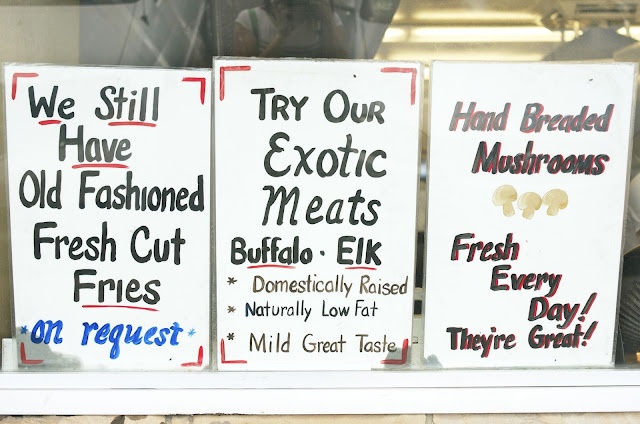 We Still
Have
Old Fashioned
Fresh Cut
Fries
*on request*
Try Our
Exotic
Meats
Buffalo · Elk
* Domestically Raised
* Naturally Low Fat
* Mild Great Taste
Hand Breaded
Mushrooms
Fresh
Every
Day!
They're Great!